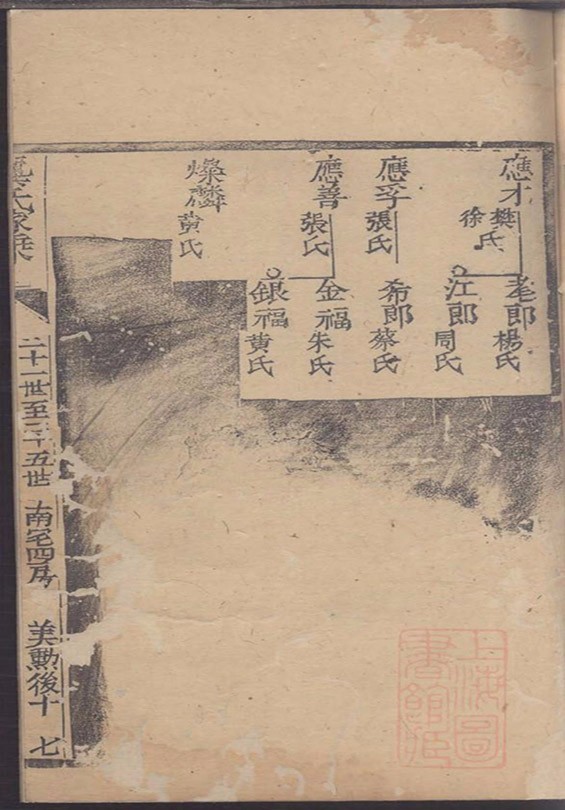 應才
樊氏
徐
老郎
楊氏
江郎
周氏
應孚
張氏
希郎
蔡氏
應善
張氏
金福
朱氏
銀福
黄氏
燦麟
黄氏
氏家乘
二十一世至二十五世
南宅四房
美勳後十七
上海圖
書館藏